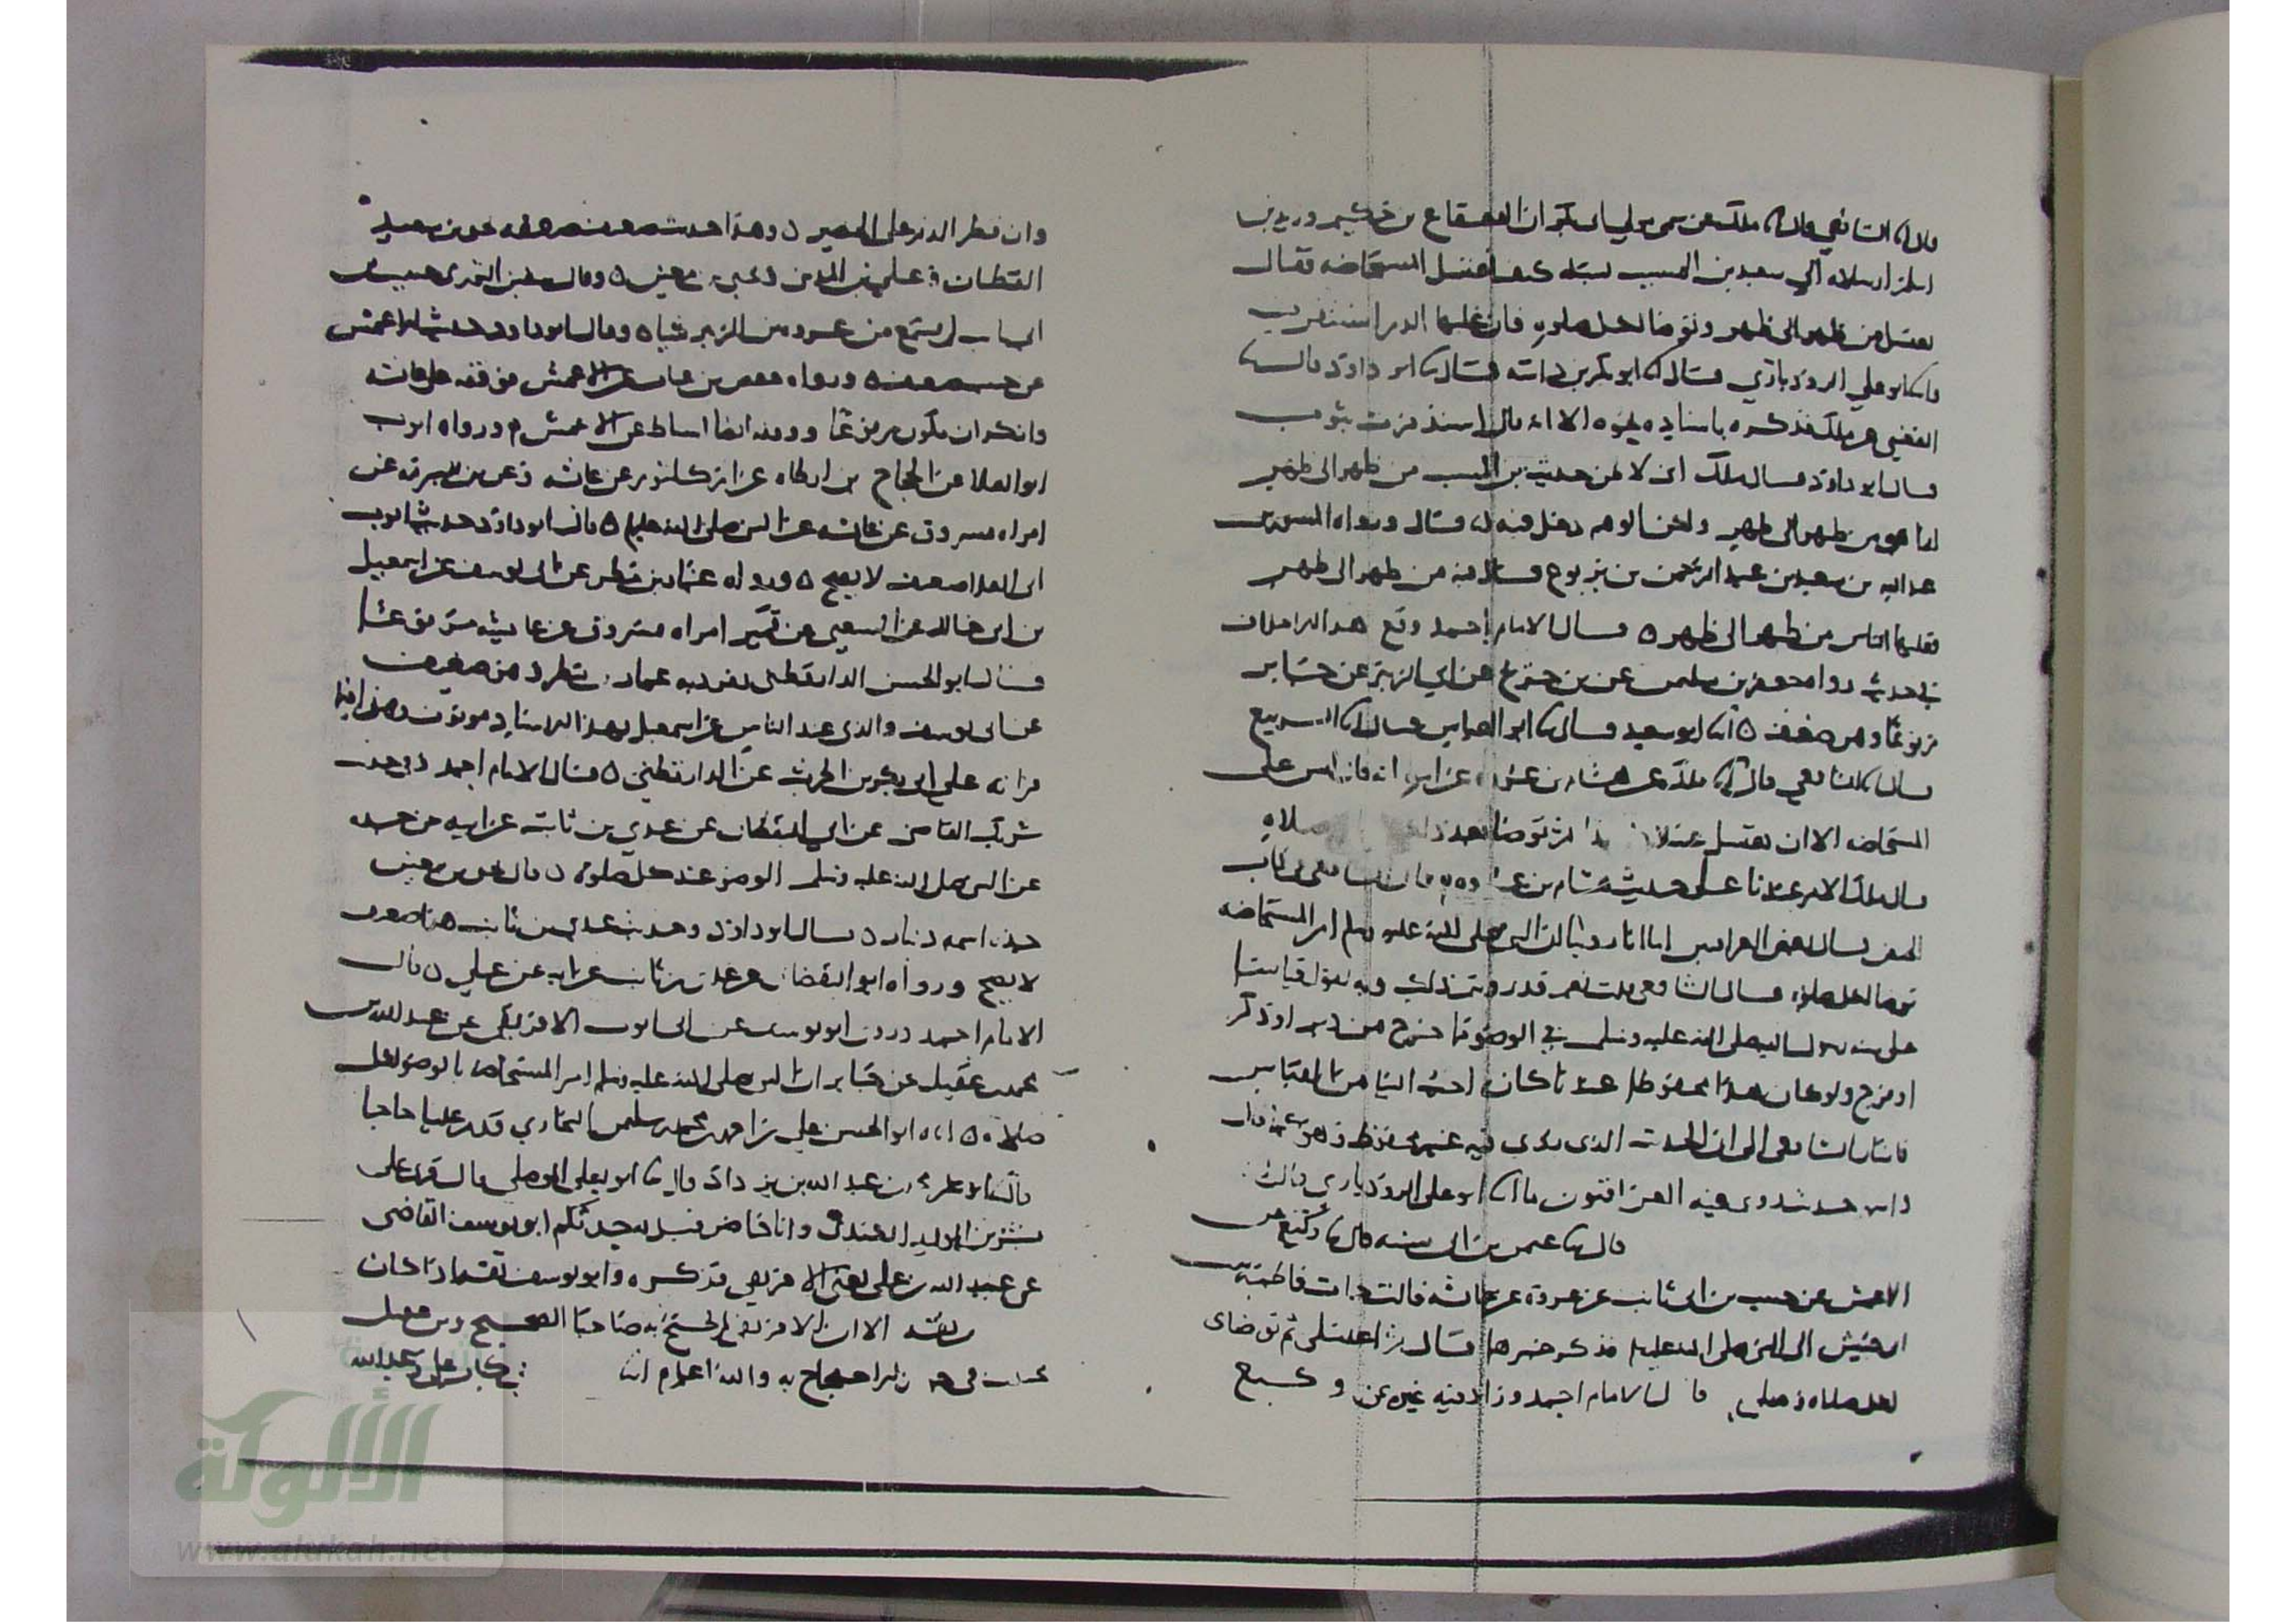 قال انا الشافعي قال انا ملك عن سمي مولى ابي بكر ان القعقاع بن حكيم وزيد بن
اسلم ارسلاه الى سعيد بن المسيب يسئله كيف تغتسل المستحاضه فقال
تغتسل من ظهر الى ظهر وتوضا لكل صلوه فان غلبها الدم استثفرت
انا ابو علي الروذباري قال انا ابو بكر بن داسه قال نا ابو داود قال نا
القعنبي عن ملك فذكره باسناده نحوه الا انه قال استذفرت بثوب
قال ابو داود قال ملك اني لاظن حديث بن المسيب من ظهر الى ظهر
انما هو من طهر الى طهر ولكن الوهم دخل فيه قال ورواه المسور بن
عبد الملك بن سعيد بن عبد الرحمن بن يربوع قال فيه من طهر الى طهر
فقلبها الناس من ظهر الى ظهر ه قال الامام احمد وقع هذا
في حديث رواه جعفر بن سليمن عن بن جريج عن ابي الزبير عن جابر
مرفوعا وهو ضعيف ه انا ابو سعيد قال نا ابو العباس قال انا الربيع
قال انا الشافعي قال انا ملك عن هشام بن عروه عن ابيه انه قال ليس على
المستحاضه الا ان تغتسل غسلا ثم توضا بعد ذلك صلاه
قال ملك الامر عندنا على حديث هشام بن عروه قال الشافعي في كتاب
الحيض قال بعض العراقيين اما انا روينا ان النبي صلى الله عليه وسلم امر المستحاضه
توضا لكل صلوه قال الشافعي قلت نعم قد رويتم ذلك وبه نقول قياسا
على سنه رسول الله صلى الله عليه وسلم في الوضو بما خرج من دبر او ذكر
او فرج ولو كان هذا محفوظا عندنا كان احب الينا من القياس
فاشار الشافعي الى ان الحديث الذي روي فيه غير محفوظ وهو كما قال
وانه حديث روى فيه العراقيون ما انا ابو علي الروذباري قال انا
قال نا عثمن بن ابي شيبه قال نا وكيع عن
الاعمش عن حبيب بن ابي ثابت عن عروه عن عائشه قالت جات فاطمه بنت
ابي حبيش الى النبي صلى الله عليه وسلم فذكر خبرها قال ثم اغتسلي ثم توضاي
لكل صلاه وصلي قال الامام احمد وزاد فيه غيره عن وكيع
وان قطر الدم على الحصير ه وهذا حديث ضعيف ضعفه يحيى بن سعيد
القطان وعلي بن المديني ويحيى بن معين ه وقال سفين الثوري حبيب بن
ابي ثابت لم يسمع من عروه بن الزبير شيا ه وقال ابو داود حديث الاعمش
عن حبيب ضعيف ه ورواه حفص بن غياث عن الاعمش فوقفه على عائشه
وانكر ان يكون مرفوعا ووقفه ايضا اسباط عن الاعمش ورواه ايوب
ابو العلا عن الحجاج بن ارطاه عن ام كلثوم عن عائشه وعن بن شبرمه عن
امراه مسروق عن عائشه عن النبي صلى الله عليه وسلم ه قال ابو داود حديث ايوب
ابي العلا ضعيف لا يصح ه ورواه عمار بن مطر عن ابي يوسف عن اسمعيل
بن ابي خالد عن الشعبي عن قمير امراه مسروق عن عائشه مرفوعا
قال ابو الحسن الدارقطني تفرد به عمار بن مطر وهو ضعيف
عن ابي يوسف والذي عند الناس عن اسمعيل بهذا الاسناد موقوف
قرانه على ابي بكر بن الحرث عن الدارقطني ه قال الامام احمد وحديث
شريك القاضي عن ابي اليقظان عن عدي بن ثابت عن ابيه عن جده
عن النبي صلى الله عليه وسلم الوضو عند كل صلوه ه قال يحيى بن معين
جده اسمه دينار ه قال ابو داود وحديث عدي بن ثابت هذا ضعيف
لا يصح ورواه ابو اليقظان عن عدي بن ثابت عن ابيه عن علي ه قال
الامام احمد وروى ابو يوسف عن ابي ايوب الافريقي عن عبد الله بن
محمد بن عقيل عن جابر ان النبي صلى الله عليه وسلم امر المستحاضه بالوضو لكل
صلاه ه اناه ابو الحسن علي بن احمد بن محمد بن سليمن البخاري قدم علينا حاجا
عبد الله بن يزداد قال نا ابو يعلى الموصلي قال قرئ على
بشر بن الوليد الكندي وانا حاضر قيل له حدثكم ابو يوسف القاضي
عن عبد الله بن علي يعني الافريقي فذكره وابو يوسف ثقه اذا كان
عن ثقه الا ان الافريقي لم يحتج به صاحبا الصحيح وبن عقيل
مختلف في جواز الاحتجاج به والله اعلم
الألوكة
www.alukah.net